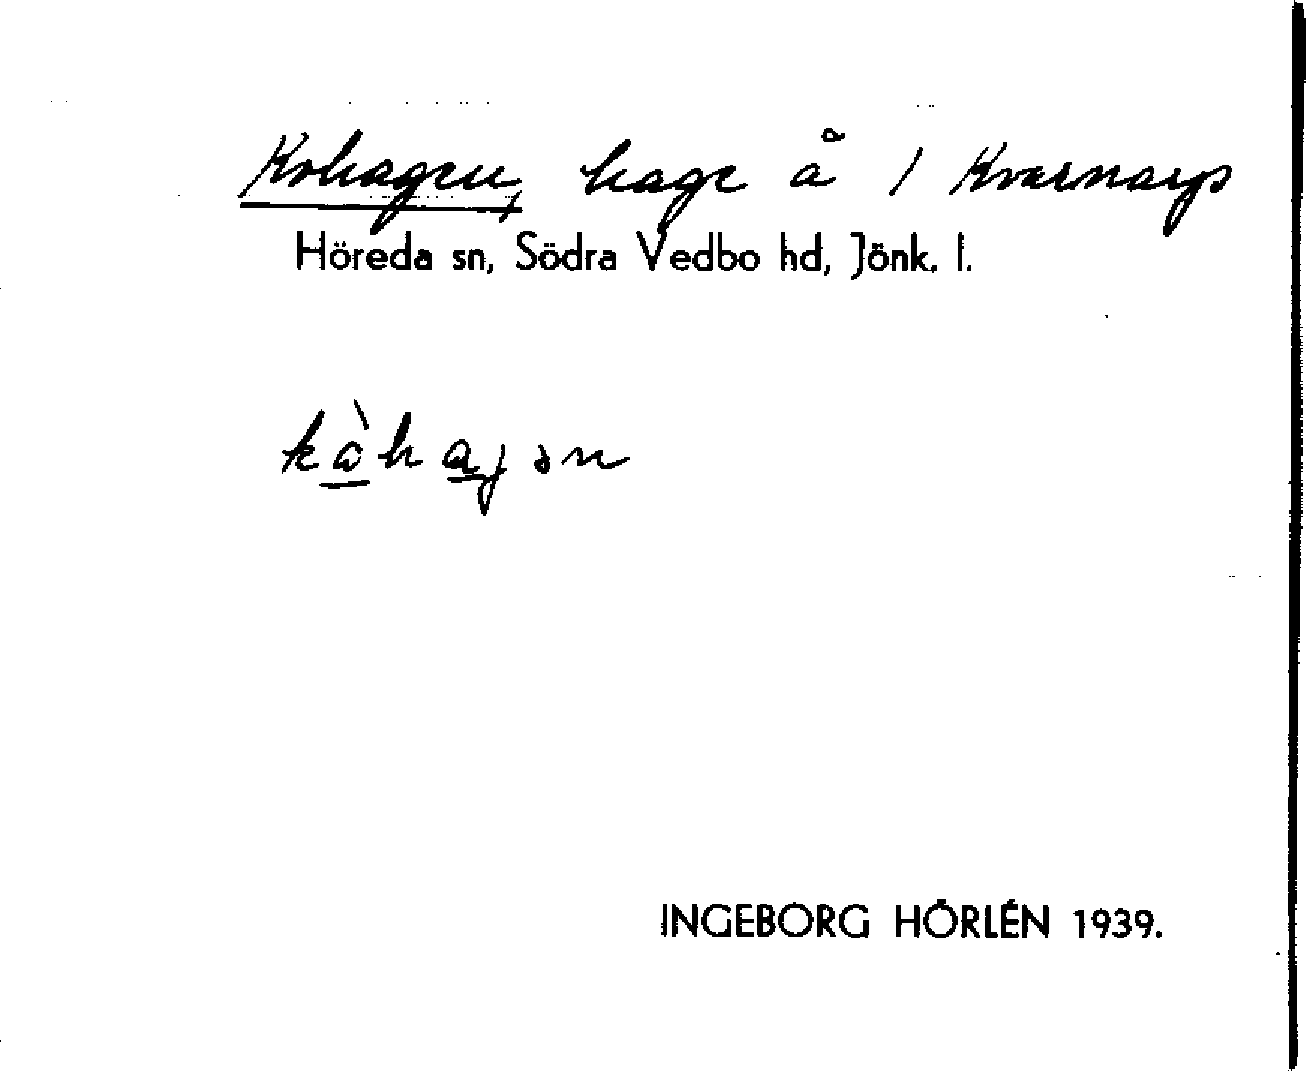 Kohagen, hage å / Kvarnarp
Höreda sn, Södra Vedbo hd, Jönk. l.
kòhagən
INGEBORG HÖRLÉN 1939.